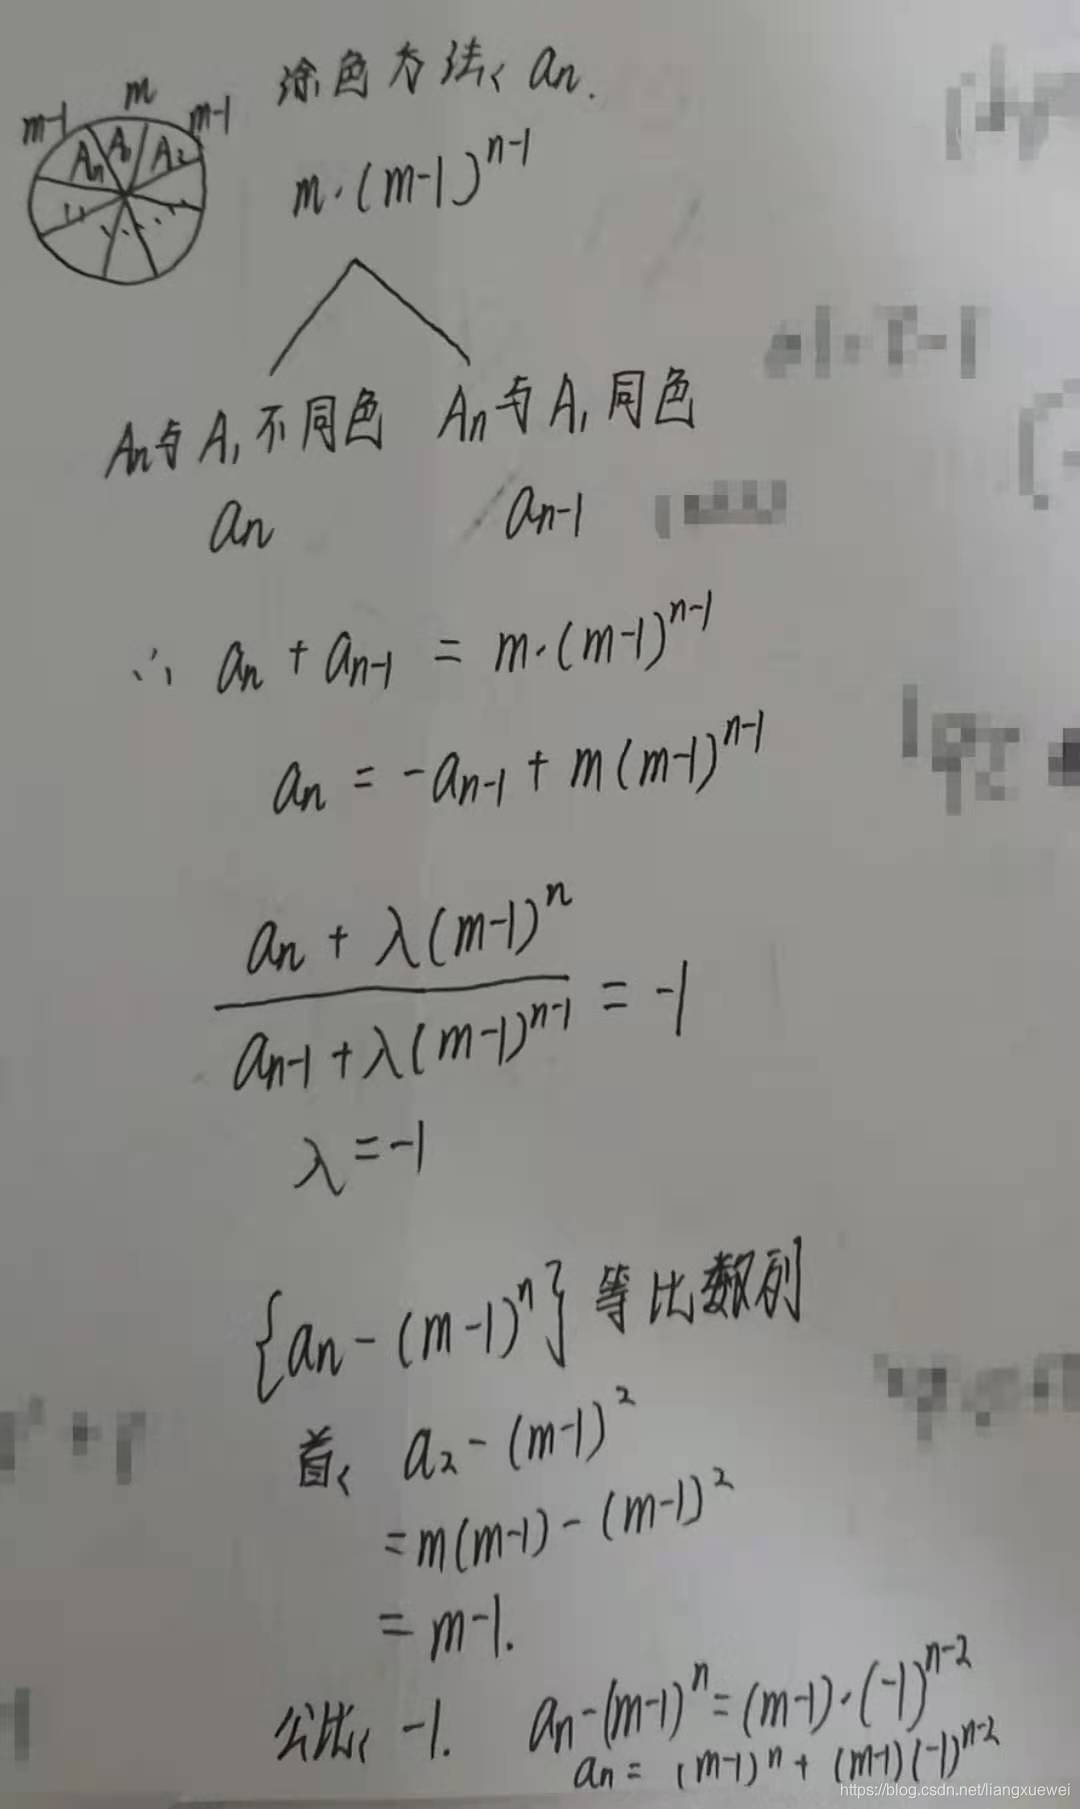 涂色方法: an.
m-1 m m-1
An A1 A2
m·(m-1)^{n-1}
An与A1不同色 An与A1同色
an an-1
∴ an + an-1 = m·(m-1)^{n-1}
an = -an-1 + m(m-1)^{n-1}
an + λ(m-1)^n
an-1 + λ(m-1)^{n-1} = -1
λ = -1
{an - (m-1)^n} 等比数列
首: a2 - (m-1)^2
= m(m-1) - (m-1)^2
= m-1.
公比: -1. an - (m-1)^n = (m-1)·(-1)^{n-2}
an = (m-1)^n + (m-1)(-1)^{n-2}
https://blog.csdn.net/liangxuewei